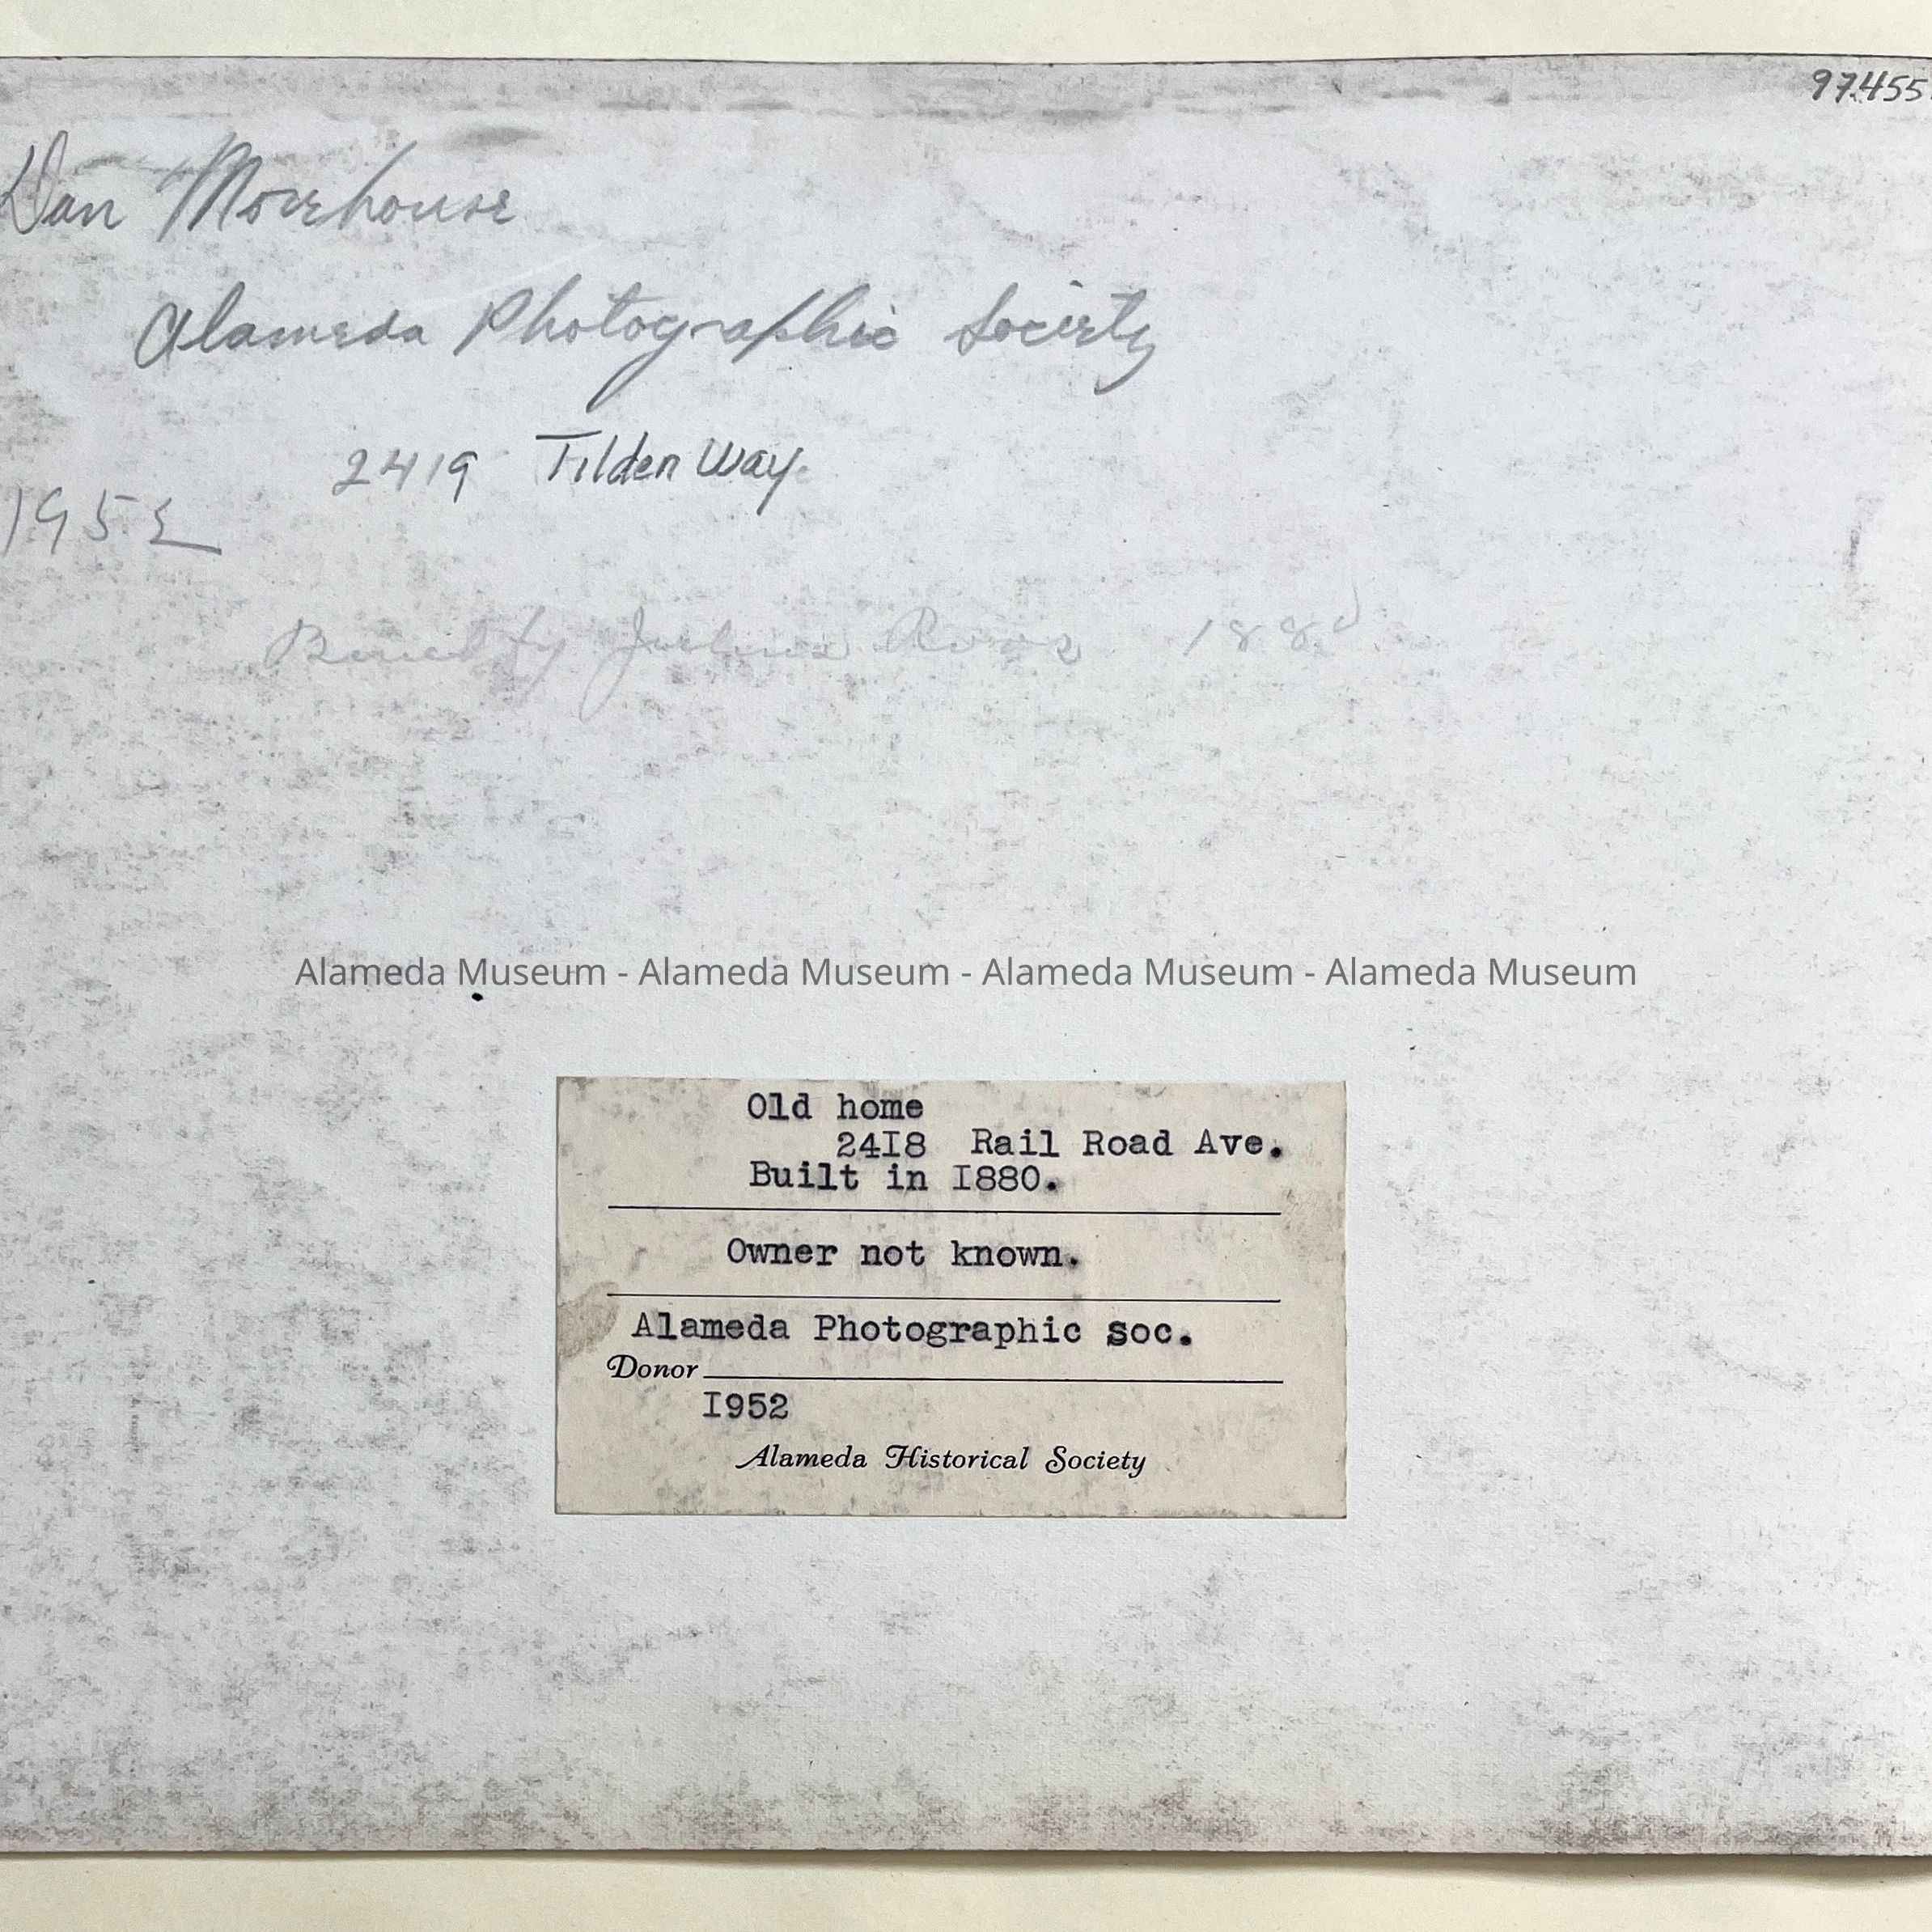 97.455
Dan Morehouse
Alameda Photographic Society
2419 Tilden Way.
1952
by Julius 188
Alameda Museum - Alameda Museum - Alameda Museum - Alameda Museum
Old home
2418 Rail Road Ave.
Built in 1880.
Owner not known.
Alameda Photographic soc.
Donor
1952
Alameda Historical Society